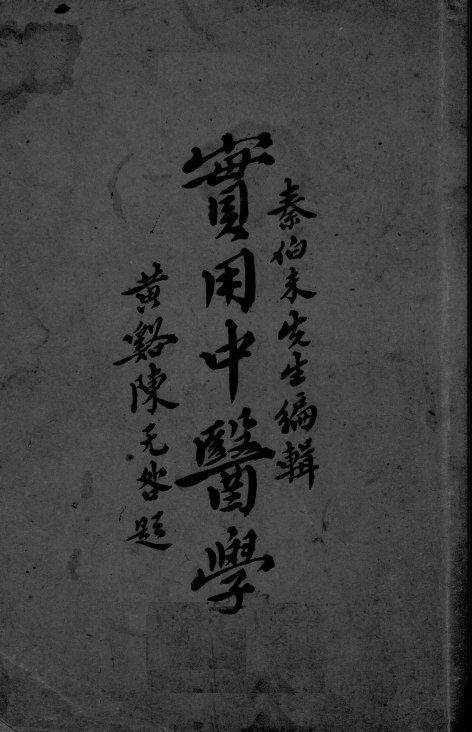 秦伯未先生編輯
實用中醫學
黃谿陳无咎題